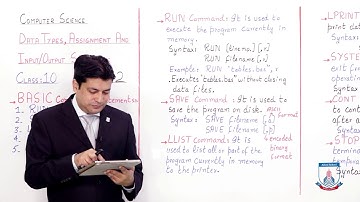 COMPUTER SCIENCE
DATA TYPES, ASSIGNMENT AND
INPUT/OUTPUT S
CLASS:10
2
BASIC Co
1. RU
2.
3.
4.
5.
→RUN Command: It is used to
execute the program currently in
memory.
Syntax: RUN [line no.] [,r]
RUN filename [,r]
Example: RUN "tables.bas",
Executes "tables.bas" without closing
data files.
→SAVE Command: It is used to
save the program on disk. ASCII
Syntax: SAVE filename [,a] format
SAVE filename [,p] encoded
binary
format
→LLIST Command: It is
used to list all or part of the
program currently in memory
to the printer.
→LPRINT
print dat
Synta
→SYSTE
exit fr
Synta
→CONT
to Con
after a
Synta
→STOP
termina
comma
Syntax